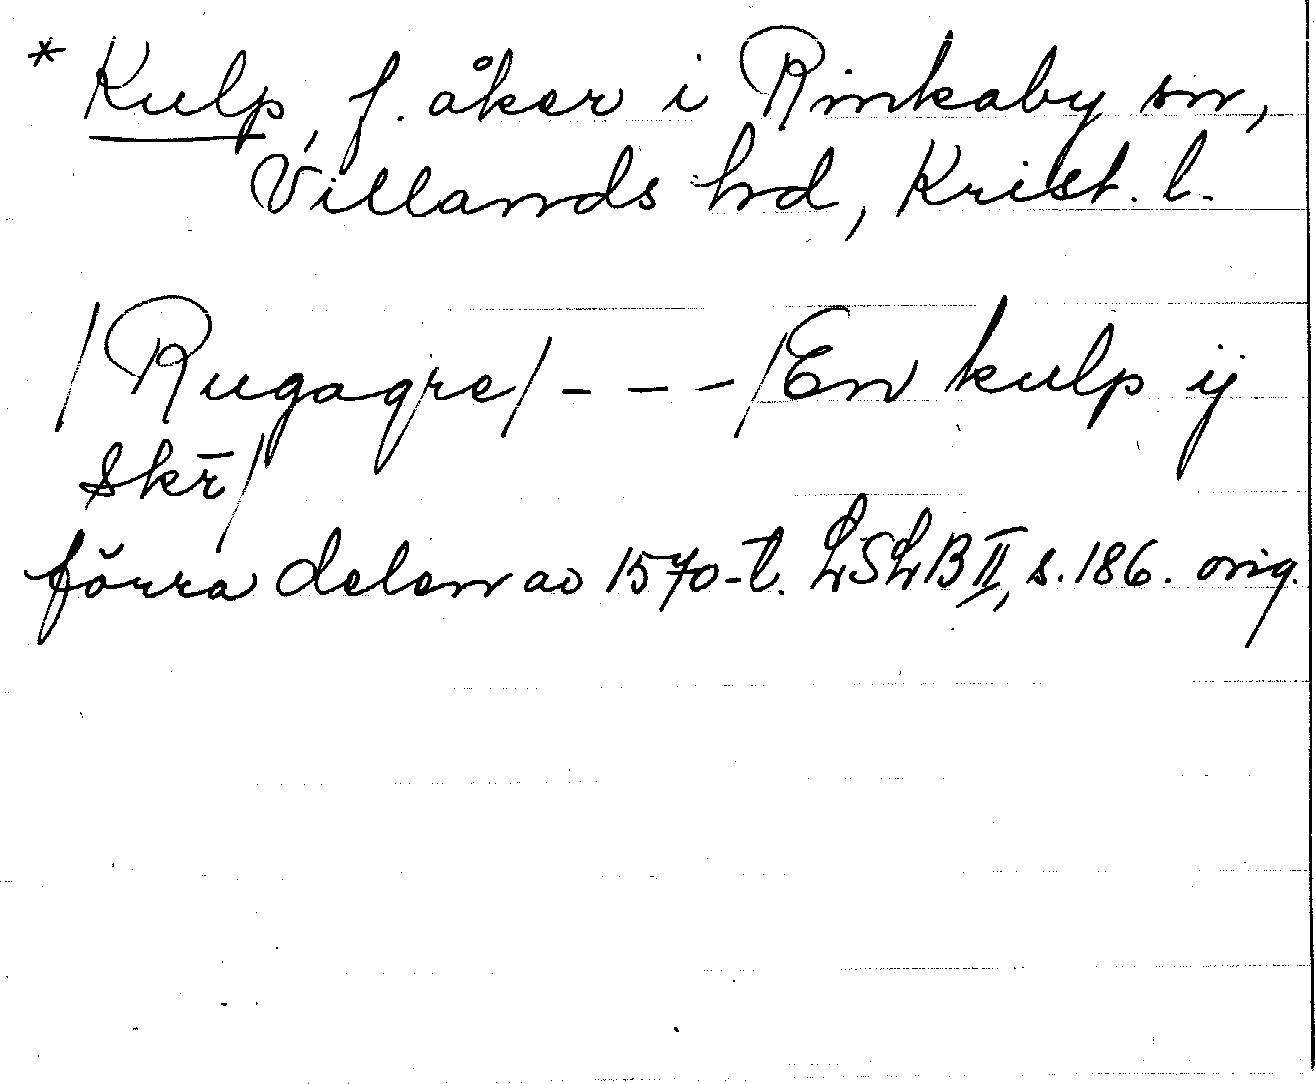 * Kulp, f. åker i Rinkaby sn,
Villands hd, Krist. l.
/Rugagre/ - - - /En kulp ij
skr̄/
förra delen av 1570-t. LSLB II, s. 186. orig.